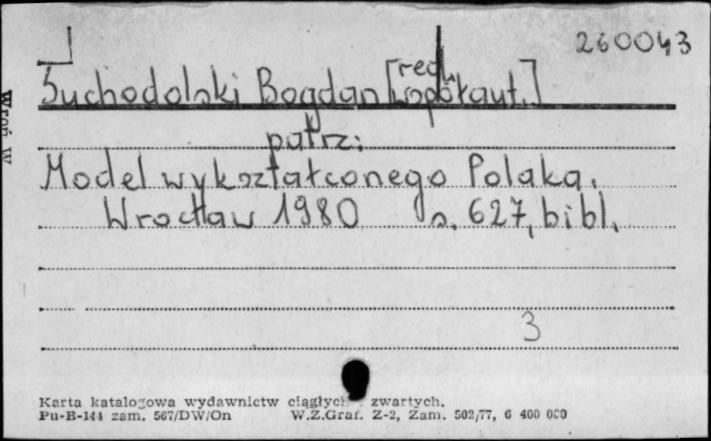 260043
Suchodolski Bogdan [red., współaut.]
patrz:
Model wykształconego Polaka.
Wrocław 1980 s. 627, bibl.
3
Karta katalogowa wydawnictw ciągłych zwartych.
Pu-B-144 zam. 567/DW/On W.Z.Graf. Z-2, Zam. 502/77, 6 400 000